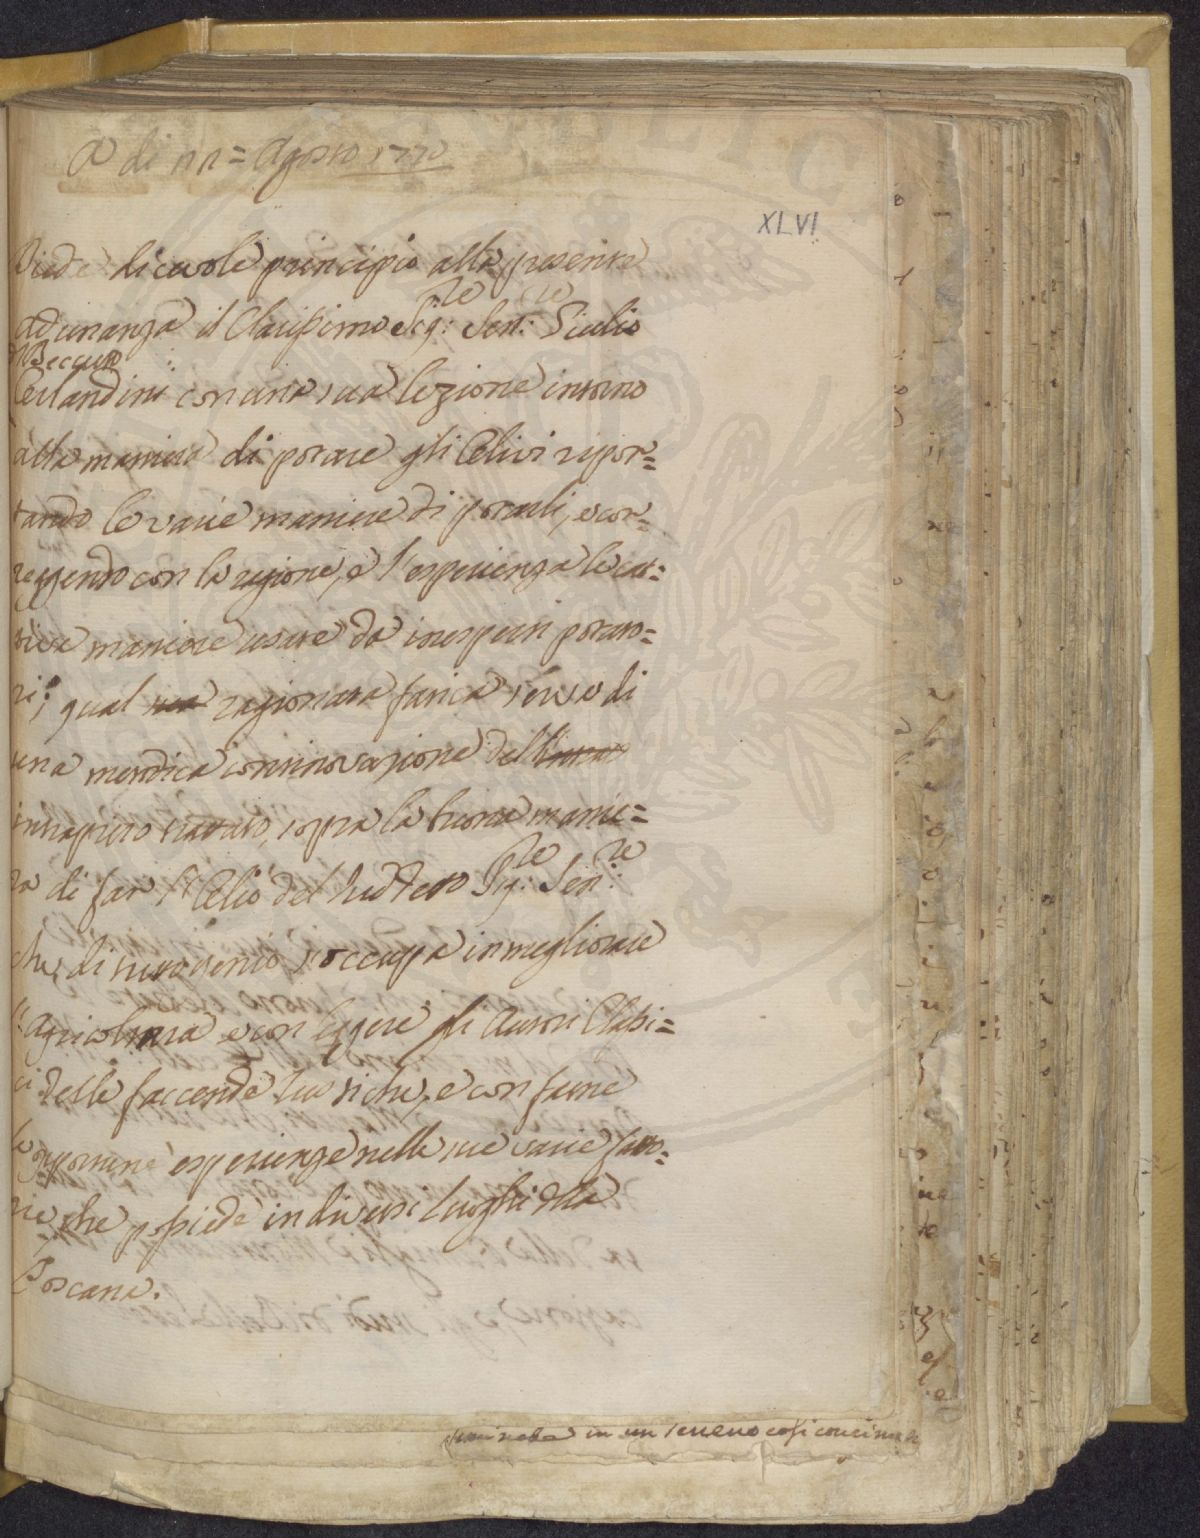 A di 22 = Agosto 1770
XLVI
Diede lodevole principio alla presente
Adunanza il Clarissimo Sig:re Sen:re Giulio
del Beccuto
Orlandini con una sua lezione intorno
alla maniera di potare gli Olivi ripor=
tando le varie maniere di potarli, e cor=
reggendo con la ragione, e l'esperienza le cat=
tive maniere usate da inesperti potato=
ri; qual ragionata fatica serve di
una metodica continovazione dell'
intrapreso trattato, sopra la buona manie=
ra di far l'Olio del sudetto Sig:re Sen:re
che di suo genio s'occupa in megliorare
l'agricoltura e con leggere gli Autori Classi=
ci delle faccende rustiche, e con farne
le opportune esperienze nelle sue varie fatto=
rie, che possiede in diversi luoghi della
Toscana.
in un terreno così concimato